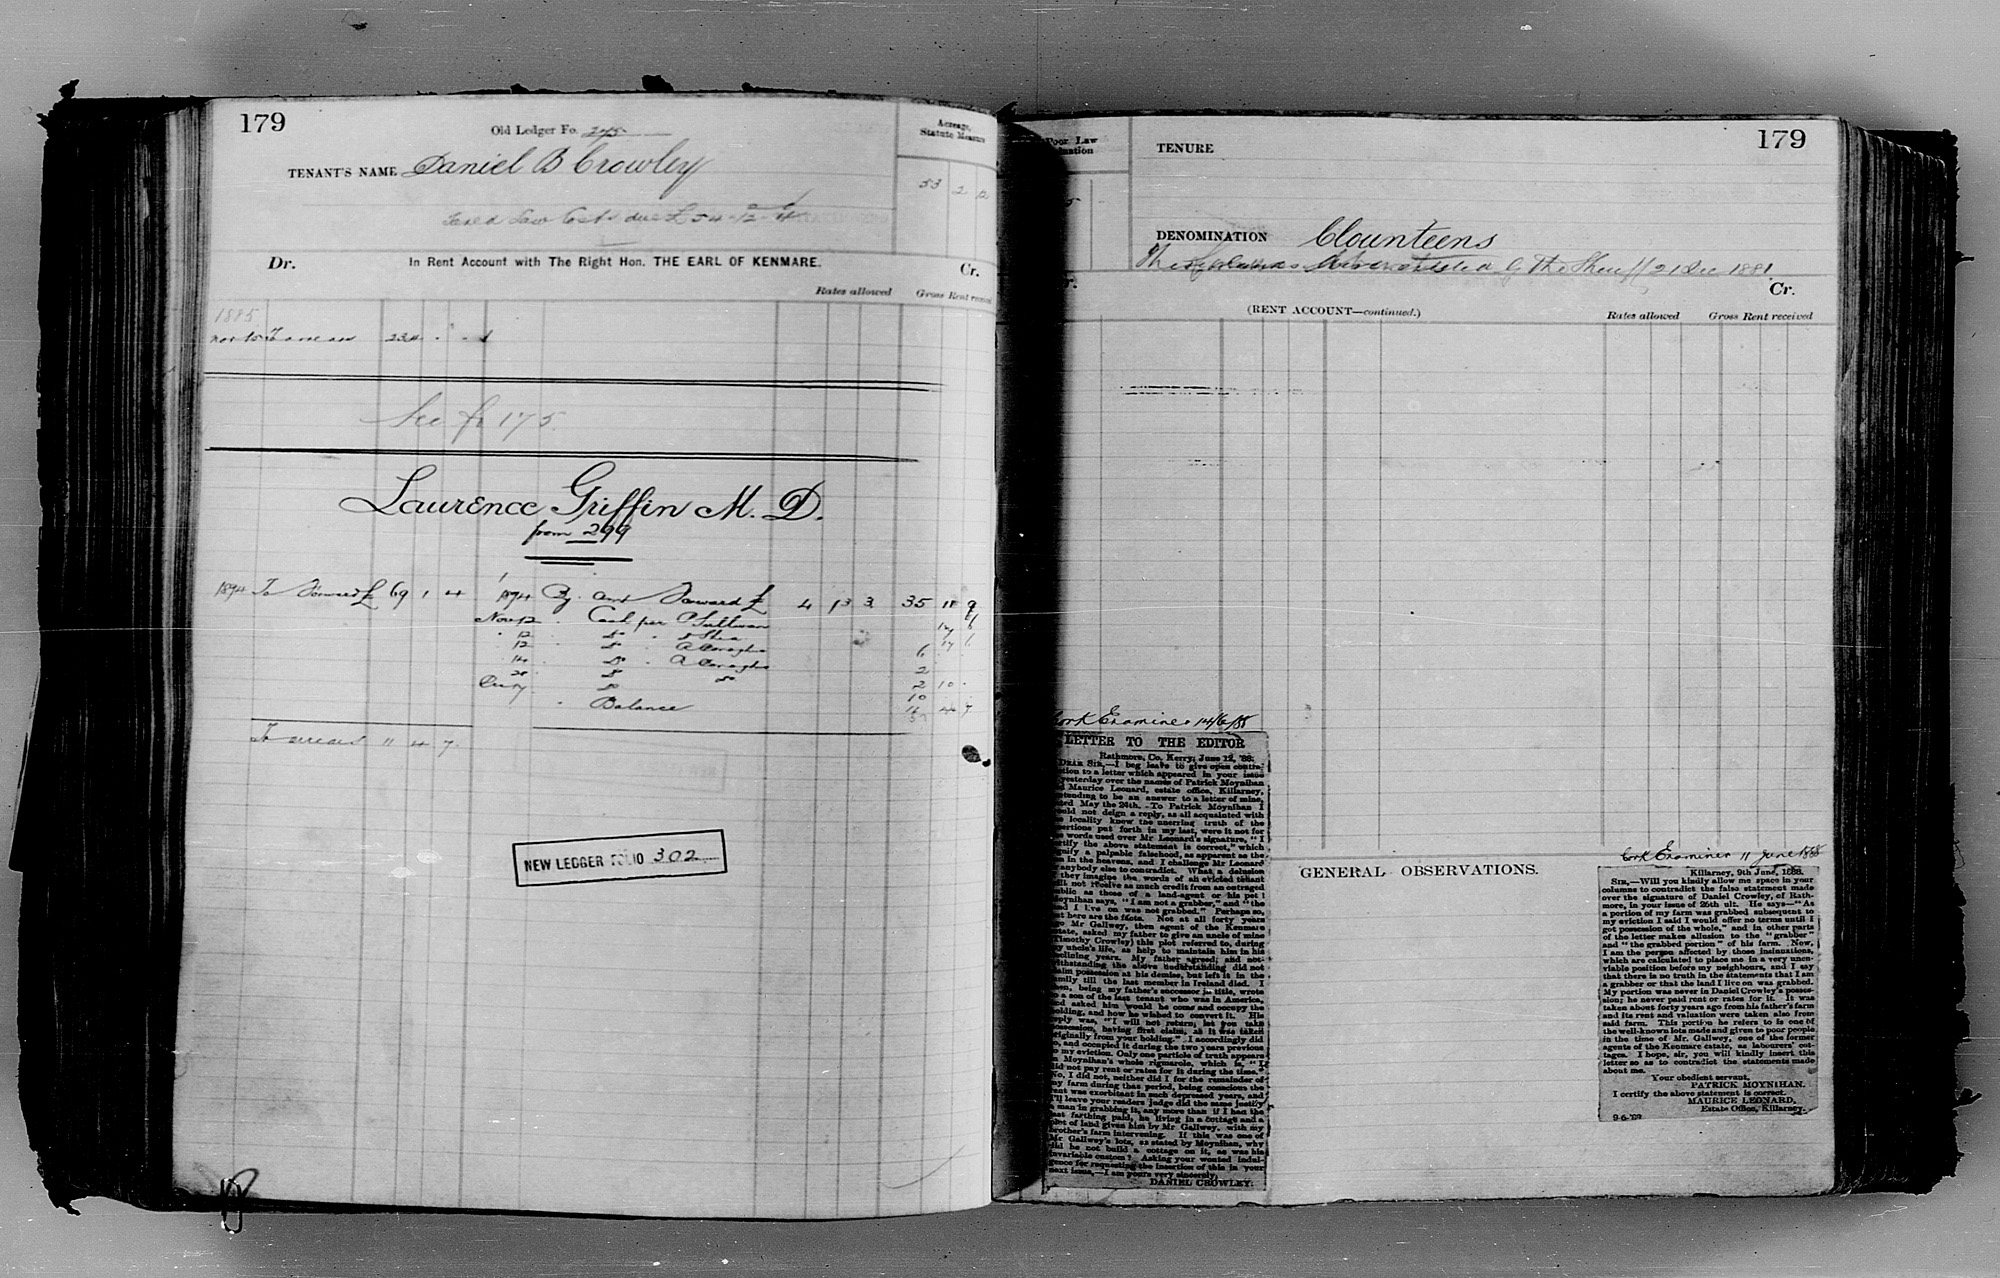 179
Old Ledger Fo. 245
Acreage, Statute Measure
TENANT'S NAME Daniel B Crowley
53 2 12
Law Costs due £54-12-4
Dr. In Rent Account with The Right Hon. THE EARL OF KENMARE. Cr.
Rates allowed Gross Rent received
1885
To arrears 234
See fo 175
Laurence Griffin M. D.
from 299
1894 To Forward £ 69 1 4 1894 By amt Forward £ 4 13 3 35 18 9
Nov 12 Cash per P Sullivan 17 6
" 12 Do " Shea 17 6
12 Do " A Donoghue 6
14 Do " A Donoghue 2
Do Do 2 10
Do 10
" Balance 11 4 7
To arrears 11 4 7
NEW LEDGER FOLIO 302
Poor Law
TENURE
179
DENOMINATION Clounteens
by the Sheriff 21 Dec 1881
Cr.
(RENT ACCOUNT—continued.) Rates allowed Gross Rent received
Cork Examiner 14/6/88
LETTER TO THE EDITOR
Rathmore, Co. Kerry, June 12, '88.
DEAR SIR,—I beg leave to give open contra-
tion to a letter which appeared in your issue
yesterday over the names of Patrick Moynihan
Maurice Leonard, estate office, Killarney,
tending to be an answer to a letter of mine,
May the 24th. To Patrick Moynihan I
not deign a reply, as all acquainted with
locality know the unerring truth of the
ertions put forth in my last, were it not for
words used over Mr Leonard's signature, "I
tify the above statement is correct," which
nify a palpable falsehood, as apparent as the
in the heavens, and I challenge Mr Leonard
anybody else to contradict. What a delusion
they imagine the words of an evicted tenant
not receive as much credit from an outraged
ublic as those of a land-agent or his pet !
oynihan says, "I am not a grabber," and "the
I live on was not grabbed." Perhaps so,
here are the facts. Not at all forty years
Mr Gallwey, then agent of the Kenmare
tate, asked my father to give an uncle of mine
Timothy Crowley) this plot referred to, during
uncle's life, as help to maintain him in his
clining years. My father agreed; and not-
withstanding the above understanding did not
aim possession at his demise, but left it in the
mily till the last member in Ireland died. I
en, being my father's successor in title, wrote
a son of the last tenant who was in America,
asked him would he come and occupy the
olding, and how he wished to convert it. His
eply was, "I will not return; let you take
ossession, having first claim, as it was taken
riginally from your holding." I accordingly did
so, and occupied it during the two years previous
my eviction. Only one particle of truth appears
Moynihan's whole rigmarole, which is, "I
did not pay rent or rates for it during the time."
No, I did not, neither did I for the remainder of
my farm during that period, being conscious the
rent was exorbitant in such depressed years, and
I'll leave your readers judge did the same justify
a man in grabbing it, any more than if I had the
last farthing paid, he living in a cottage and a
plot of land given him by Mr Gallwey, with my
brother's farm intervening. If this was one of
Mr Gallwey's lots, as stated by Moynihan, why
did he not build a cottage on it, as was his
invariable custom? Asking your wonted indul-
gence for requesting the insertion of this in your
next issue,—I am yours very sincerely,
DANIEL CROWLEY.
GENERAL OBSERVATIONS.
Cork Examiner 11 June 1888
Killarney, 9th June, 1888.
SIR,—Will you kindly allow me space in your
columns to contradict the false statement made
over the signature of Daniel Crowley, of Rath-
more, in your issue of 26th ult. He says—"As
a portion of my farm was grabbed subsequent to
my eviction I said I would offer no terms until I
got possession of the whole," and in other parts
of the letter makes allusion to the "grabber"
and "the grabbed portion" of his farm. Now,
I am the person affected by those insinuations,
which are calculated to place me in a very unen-
viable position before my neighbours, and I say
that there is no truth in the statements that I am
a grabber or that the land I live on was grabbed.
My portion was never in Daniel Crowley's posses-
sion; he never paid rent or rates for it. It was
taken about forty years ago from his father's farm
and its rent and valuation were taken also from
said farm. This portion he refers to is one of
the well-known lots made and given to poor people
in the time of Mr. Gallwey, one of the former
agents of the Kenmare estate, as labourers' cot-
tages. I hope, sir, you will kindly insert this
letter so as to contradict the statements made
about me.
Your obedient servant,
PATRICK MOYNIHAN.
I certify the above statement is correct.
MAURICE LEONARD,
Estate Office, Killarney.